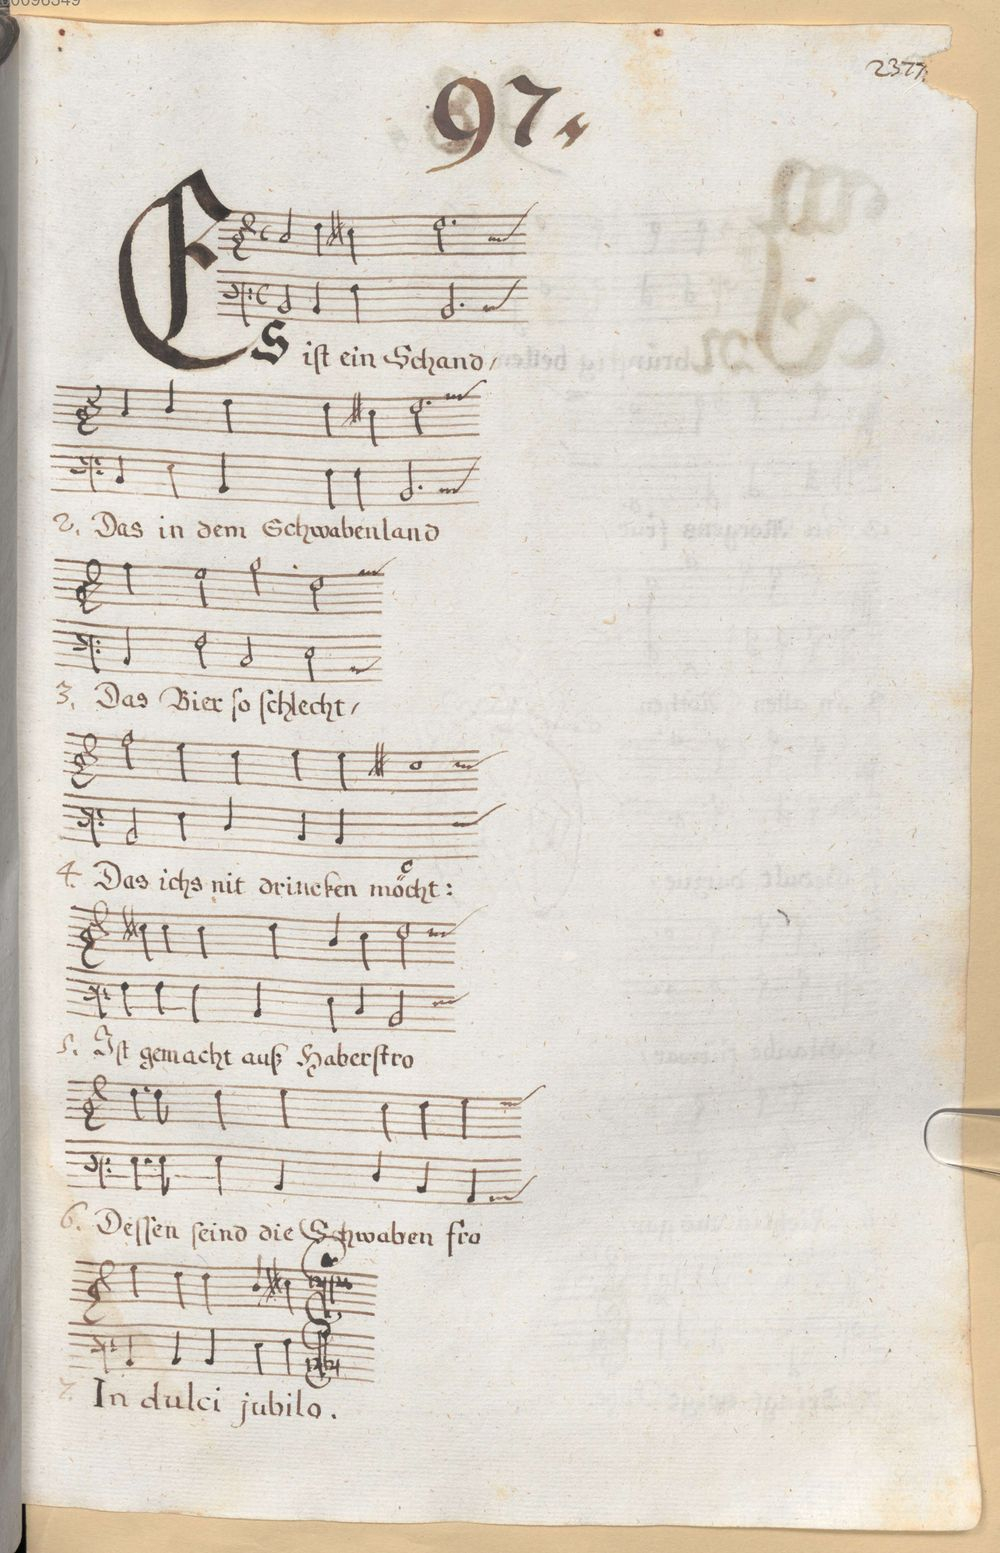 2377.
97.
Es ist ein Schand,
2. Das in dem Schwabenland
3. Das Bier so schlecht,
4. Das ichs nit drincken möcht:
5. Ist gemacht auß Haberstro
6. Dessen seind die Schwaben fro
7. In dulci jubilo.